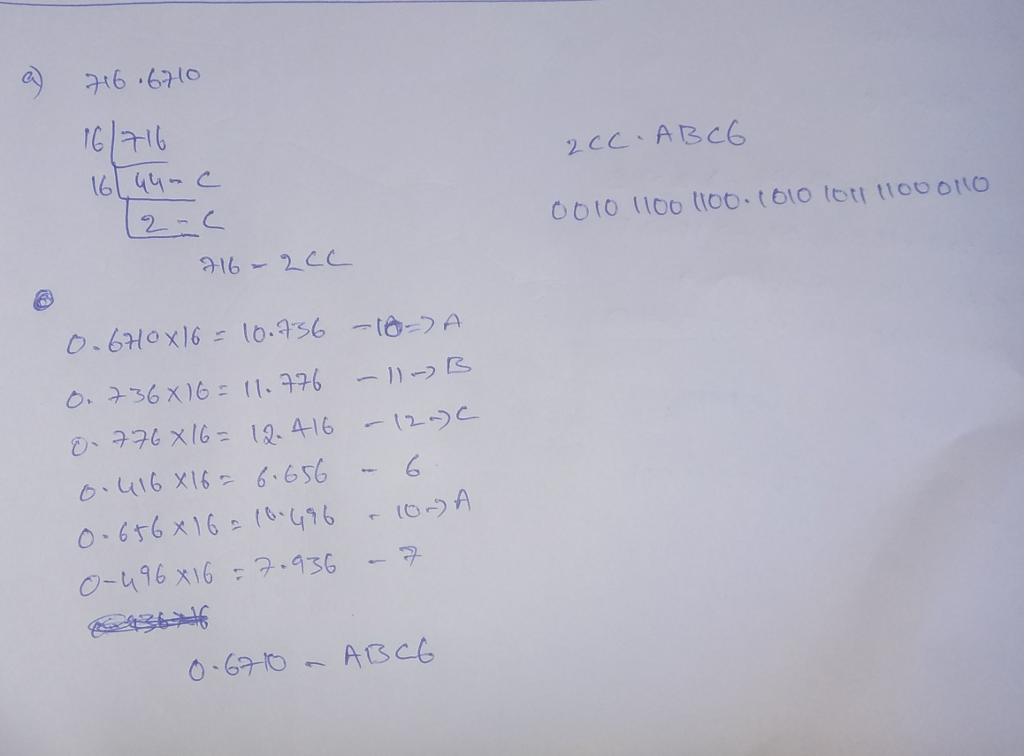 a) 716.6710
16 | 716
16 | 44 - C
2 - C
716 - 2CC
0.6710 x 16 = 10.736 - 10 -> A
0.736 x 16 = 11.776 - 11 -> B
0.776 x 16 = 12.416 - 12 -> C
0.416 x 16 = 6.656 - 6
0.656 x 16 = 10.496 - 10 -> A
0-496 x 16 = 7.936 - 7
0.6710 - ABC6
2CC.ABC6
0010 1100 1100.1010 1011 1100 0110